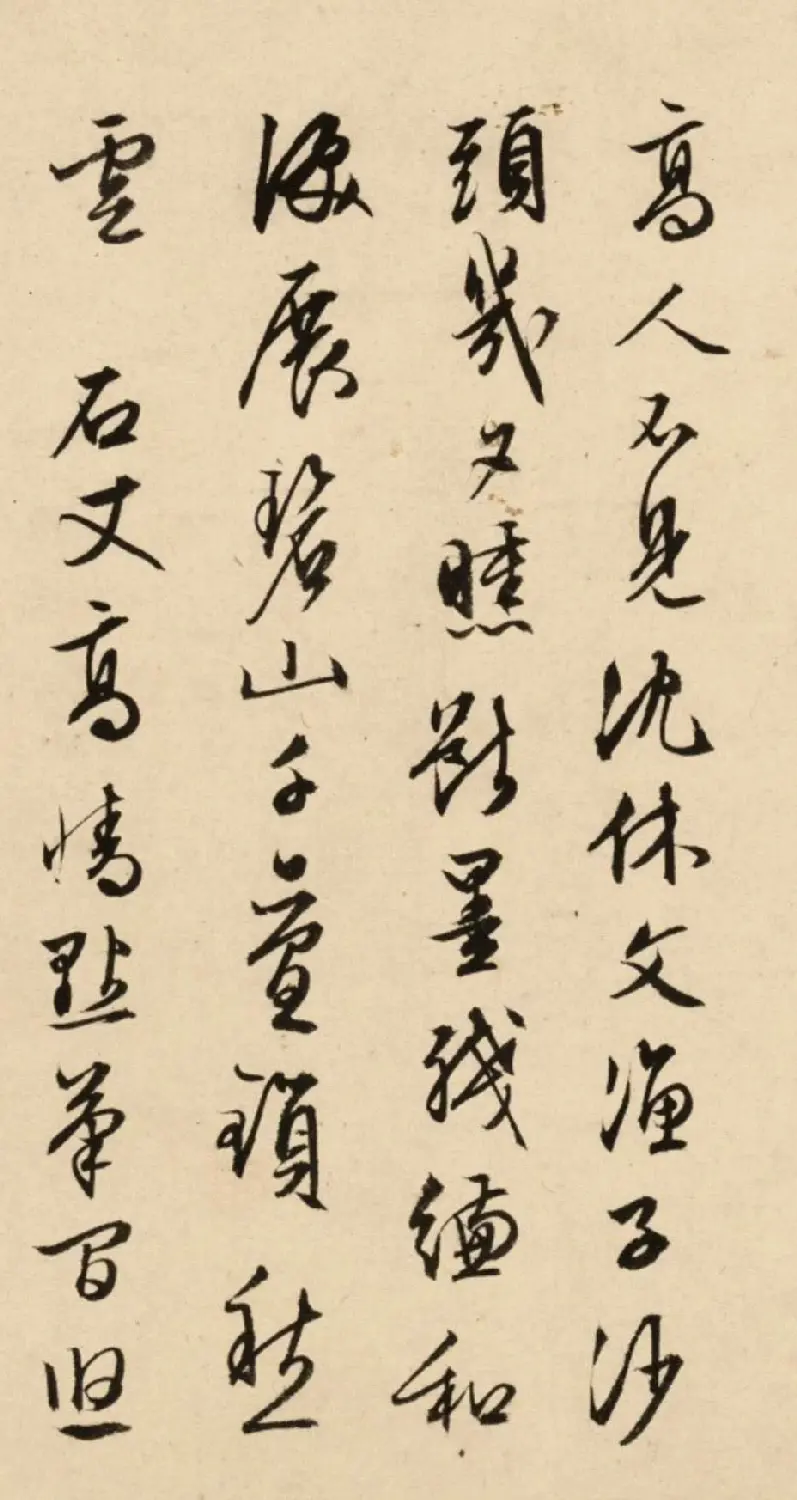 高人不見沈休文漁子沙
頭幾夕曛斷墨殘縑和
淚展碧山千疊鎖愁
雲 石丈高情點筆間思